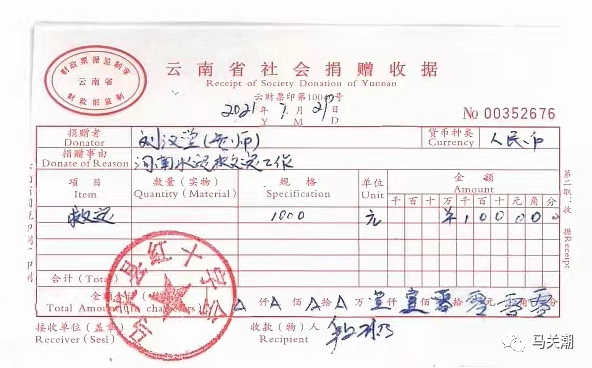 云南省社会捐赠收据
财政票据监制章
云南省
财政部监制
Receipt of Society Donation of Yunnan
云财票印第100 号
2021 年 7 月 27 日
Y M D
No 00352676
捐赠者 刘汉 (老师) 货币种类 人民币
Donator Currency
捐赠事由 河南水 救灾工作
Donate of Reason
项目 数量(实物) 规格 单位 金额
Item Quantity (Material) Specification Unit Amount
千 百 十 万 千 百 十 元 角 分
救灾 1000 元 ¥ 1 0 0 0 0 0
合计(Total)
金额 仟 佰 拾 万 仟 零 佰 零 拾 零 元 零 角 零 分
Total Amount in characters
接收单位(盖章) 收款(物)人
Receiver (Sesl) Recipient
县红十字会
第二联 收据 Receipt
马关潮